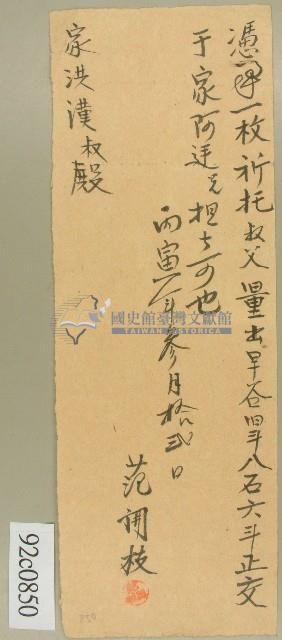 憑單一枚祈托叔父量出早谷四千八石六斗正交
于家阿廷兄担去可也
丙寅年參月拾貳日
范開枝
家洪漢叔殿
國史館臺灣文獻館
TAIWAN HISTORICA
92c0850